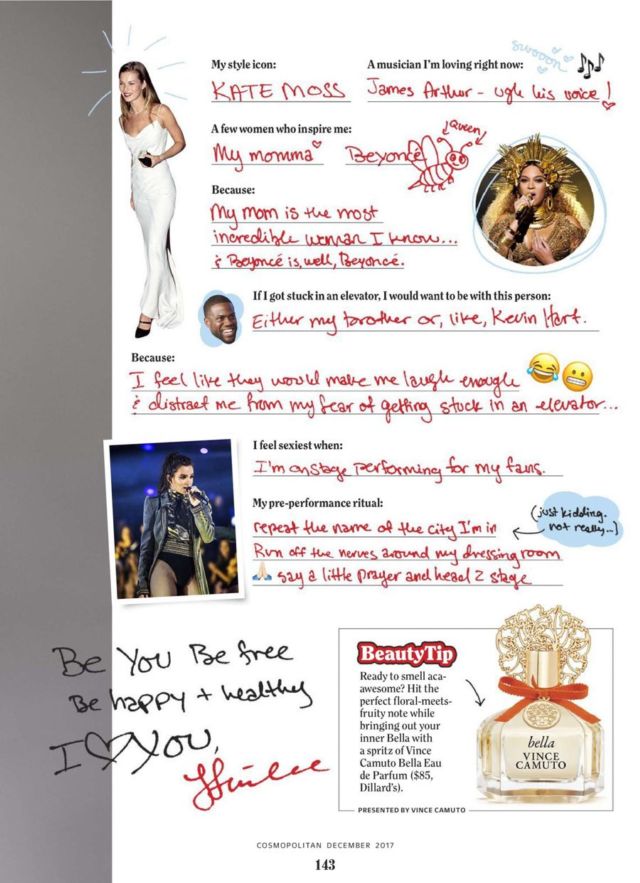 swooon
My style icon:
A musician I'm loving right now:
KATE MOSS
James Arthur - ugh his voice!
A few women who inspire me:
Queen
My momma
Beyoncé
Because:
My mom is the most
incredible woman I know...
& Beyoncé is, well, Beyoncé.
If I got stuck in an elevator, I would want to be with this person:
Either my brother or, like, Kevin Hart.
Because:
I feel like they would make me laugh enough
& distract me from my fear of getting stuck in an elevator...
I feel sexiest when:
I'm onstage performing for my fans.
My pre-performance ritual:
(just kidding.
not really...)
repeat the name of the city I'm in
Run off the nerves around my dressing room
🙏 say a little prayer and head 2 stage
Be You Be free
Be happy + healthy
I ♡ You,
BeautyTip
Ready to smell aca-
awesome? Hit the
perfect floral-meets-
fruity note while
bringing out your
inner Bella with
a spritz of Vince
Camuto Bella Eau
de Parfum ($85,
Dillard's).
bella
VINCE
CAMUTO
PRESENTED BY VINCE CAMUTO
COSMOPOLITAN DECEMBER 2017
143